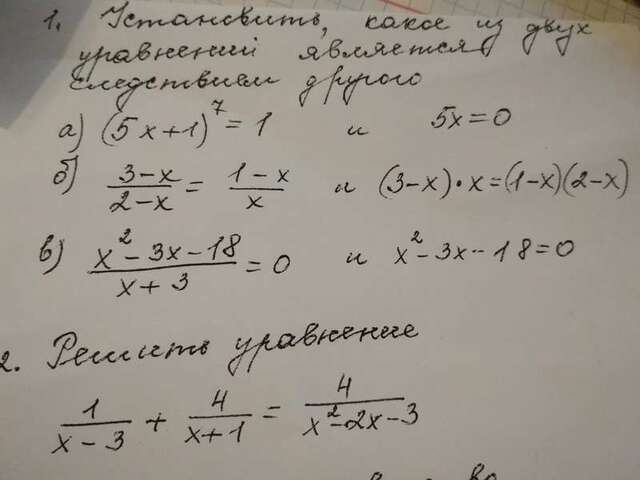 1. Установить, какое из двух
уравнений является
следствием другого
а) (5x+1)^7 = 1 и 5x=0
б) (3-x)/(2-x) = (1-x)/x и (3-x)·x=(1-x)(2-x)
в) (x^2-3x-18)/(x+3) = 0 и x^2-3x-18=0
2. Решить уравнение
1/(x-3) + 4/(x+1) = 4/(x^2-2x-3)